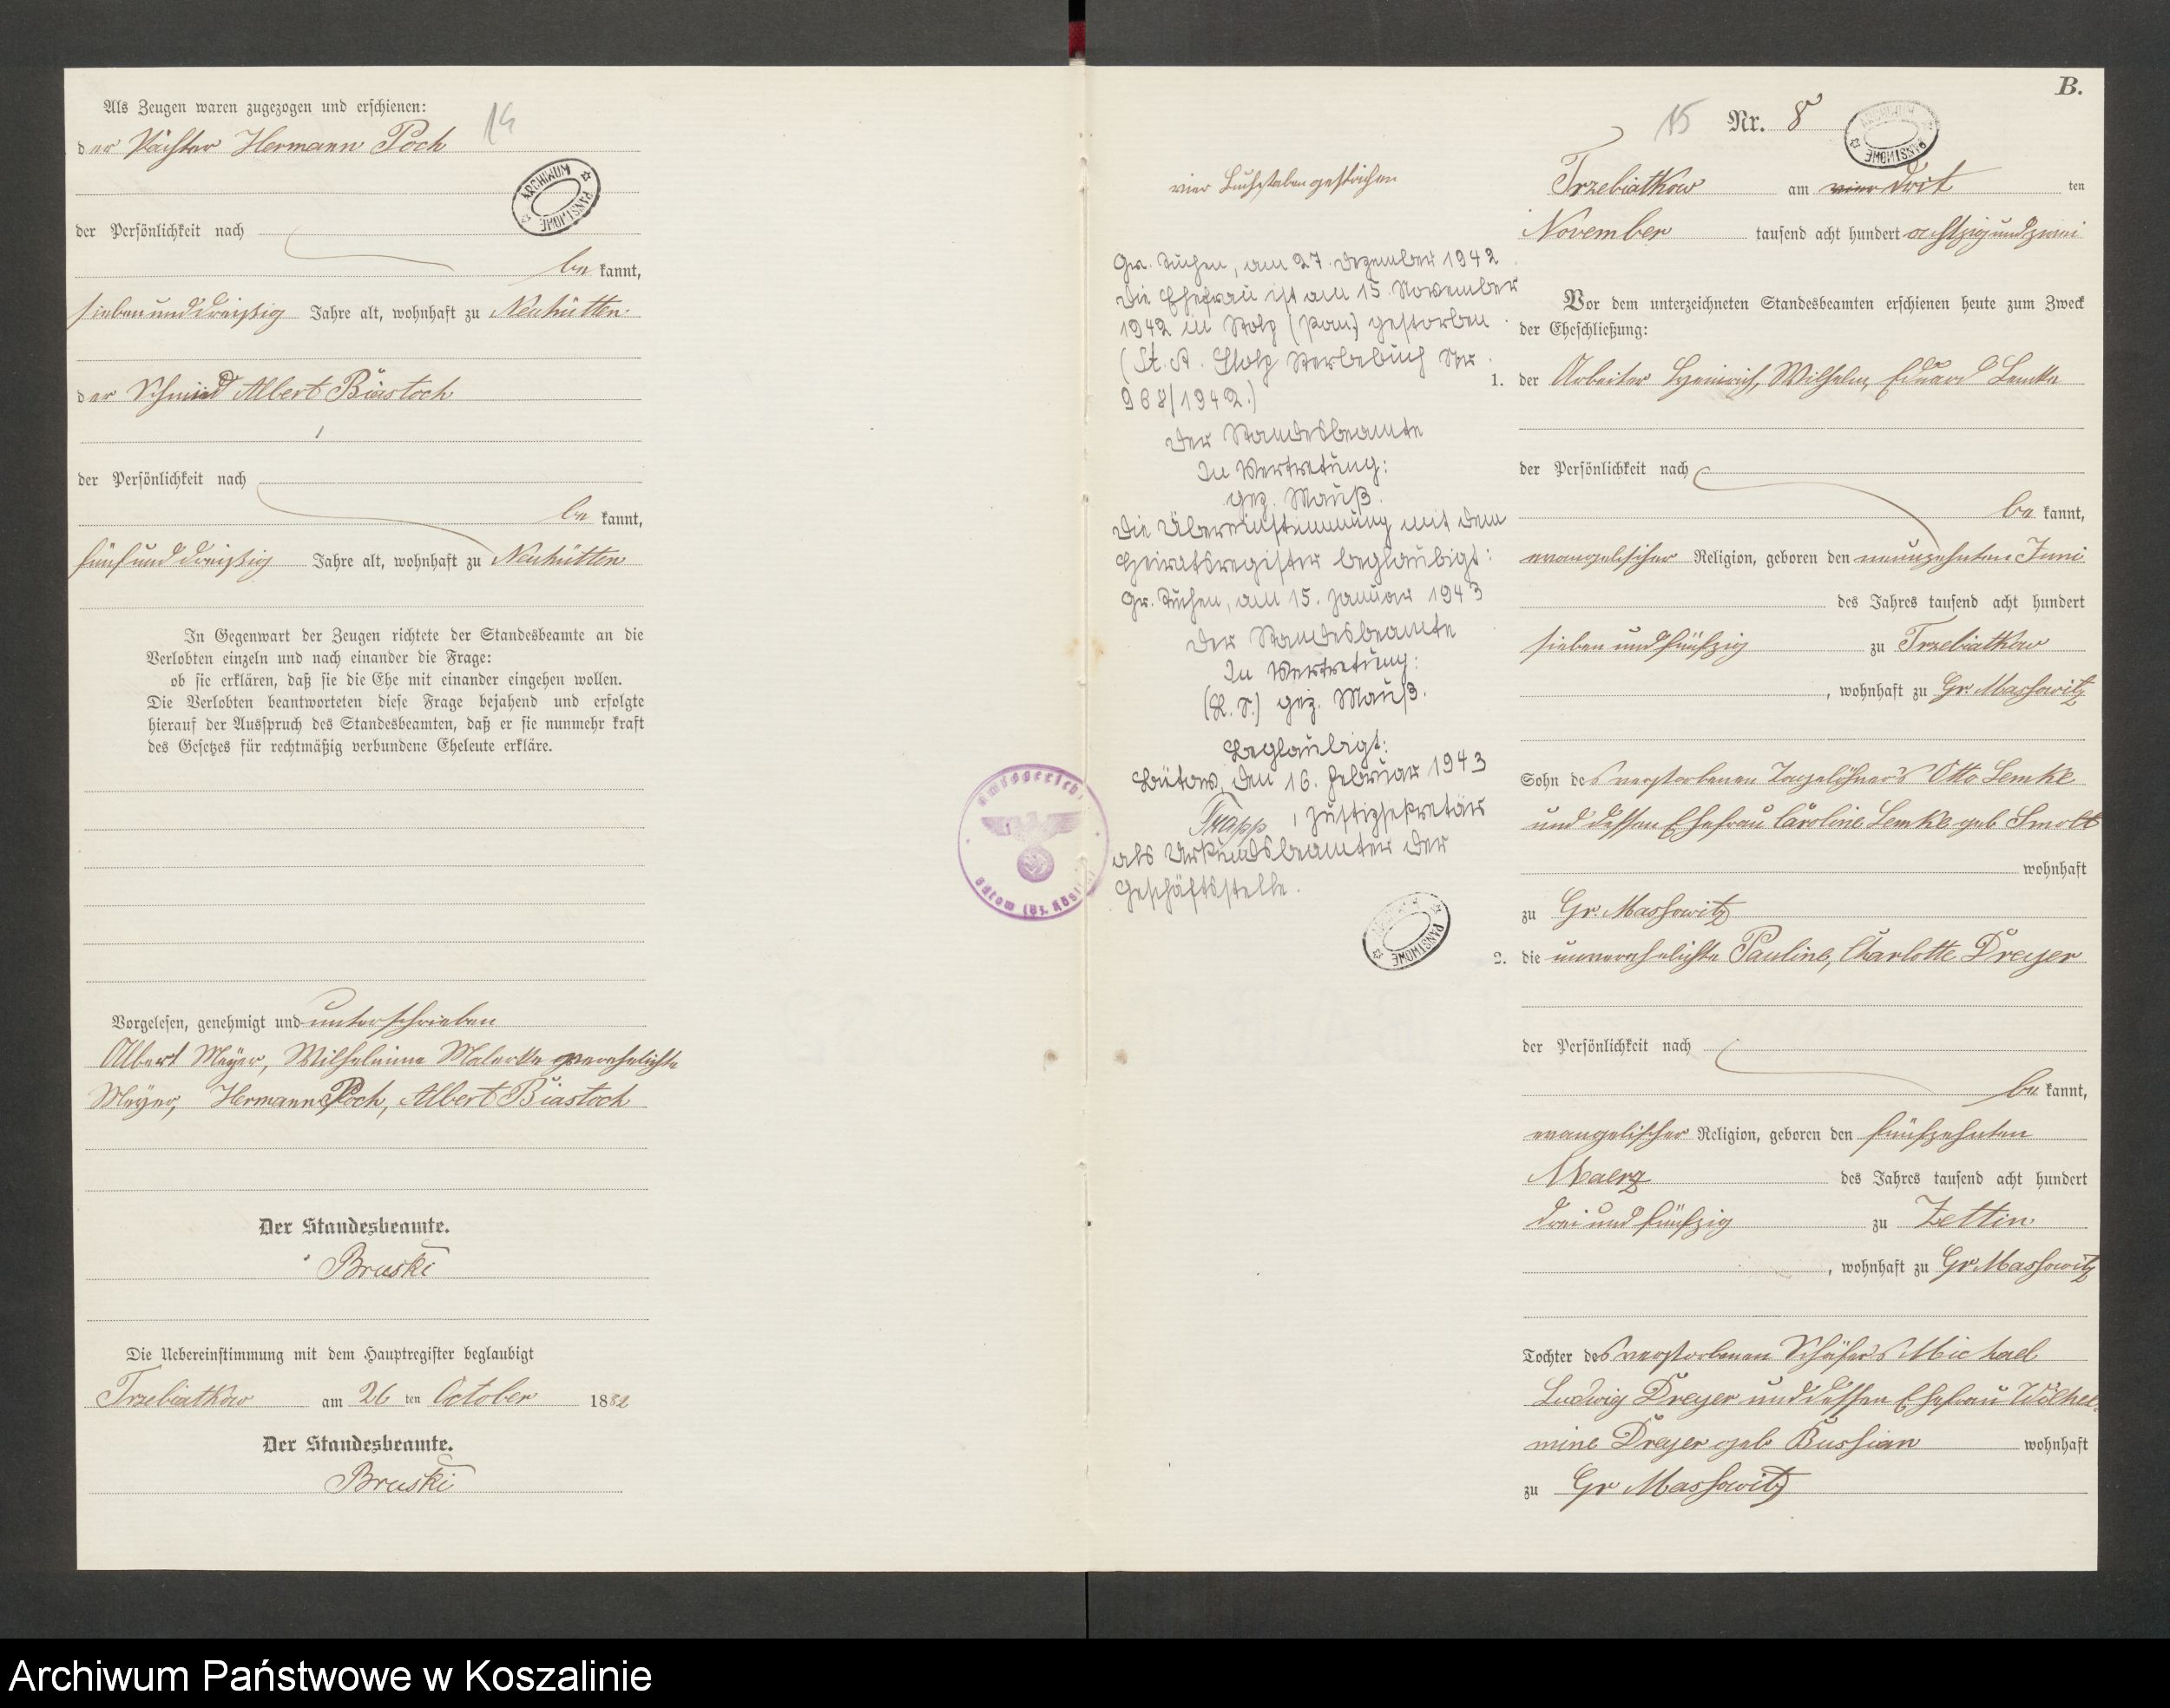 Als Zeugen waren zugezogen und erschienen:
14
der Pächter Hermann Poch
ARCHIWUM PAŃSTWOWE
der Persönlichkeit nach
be kannt,
sieben und dreißig Jahre alt, wohnhaft zu Neuhütten
der Schmied Albert Biastoch
der Persönlichkeit nach
be kannt,
fünf und dreißig Jahre alt, wohnhaft zu Neuhütten
In Gegenwart der Zeugen richtete der Standesbeamte an die
Verlobten einzeln und nach einander die Frage:
ob sie erklären, daß sie die Ehe mit einander eingehen wollen.
Die Verlobten beantworteten diese Frage bejahend und erfolgte
hierauf der Ausspruch des Standesbeamten, daß er sie nunmehr kraft
des Gesetzes für rechtmäßig verbundene Eheleute erkläre.
Vorgelesen, genehmigt und unterschrieben
Albert Meÿer, Wilhelmine verehelichte
Meÿer, Hermann Poch, Albert Biastoch
Der Standesbeamte.
Bruski
Die Uebereinstimmung mit dem Hauptregister beglaubigt
Trzebiatkow am 26 ten October 1882
Der Standesbeamte.
Bruski
vier Buchstaben gestrichen
Gr. Tuchen, am 27. Dezember 1942
Die Ehefrau ist am 15. November
1942 in Stolp (Pom.) gestorben
(St. A. Stolp Sterbebuch Nr.
968/1942.)
Der Standesbeamte
In Vertretung:
gez. Mauß.
Die Übereinstimmung mit dem
Heiratsregister beglaubigt:
Gr. Tuchen, am 15. Januar 1943
Der Standesbeamte
In Vertretung:
(L. S.) gez. Mauß.
Beglaubigt:
Bütow, den 16. Februar 1943
Trapp, Justizsekretär
als Urkundsbeamter der
Geschäftsstelle.
Amtsgericht
Bütow (Bz. Köslin)
PAŃSTWOWE
B.
15 Nr. 8
ARCHIWUM PAŃSTWOWE
Trzebiatkow am vier drit ten
November tausend acht hundert achtzig und zwei
Vor dem unterzeichneten Standesbeamten erschienen heute zum Zweck
der Eheschließung:
1. der Arbeiter Heinrich, Wilhelm, Eduard Lemke
der Persönlichkeit nach
be kannt,
evangelischer Religion, geboren den neunzehnten Juni
des Jahres tausend acht hundert
sieben und fünfzig zu Trzebiatkow
, wohnhaft zu Gr. Massowitz
Sohn des verstorbenen Tagelöhner's Otto Lemke
und dessen Ehefrau Caroline Lemke geb Smolt
wohnhaft
zu Gr. Massowitz
2. die unverehelichte Pauline, Charlotte Dreyer
der Persönlichkeit nach
be kannt,
evangelischer Religion, geboren den fünfzehnten
Maerz des Jahres tausend acht hundert
drei und fünfzig zu Zettin
, wohnhaft zu Gr. Massowitz
Tochter des verstorbenen Schäfer's Michael
Ludwig Dreyer und dessen Ehefrau Wilhel-
mine Dreyer geb Bussian wohnhaft
zu Gr Massowitz
Archiwum Państwowe w Koszalinie